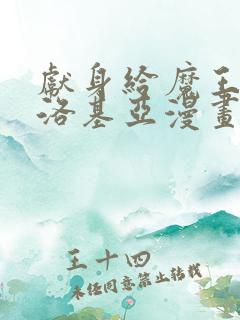 獻身給魔王
洛基亞漫畫
王十四
未经同意禁止转载